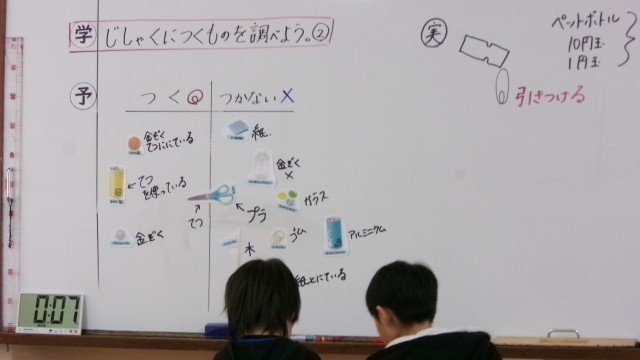 学 じしゃくにつくものを調べよう。②
予
つく○ つかない×
金ぞく
てつににている
←てつ
を使っている
金ぞく
紙
金ぞく
×
ガラス
↑
てつ
←プラ
木
ゴム
アルミニウム
紙とにている
実
ペットボトル
10円玉
1円玉
引きつける
0:07